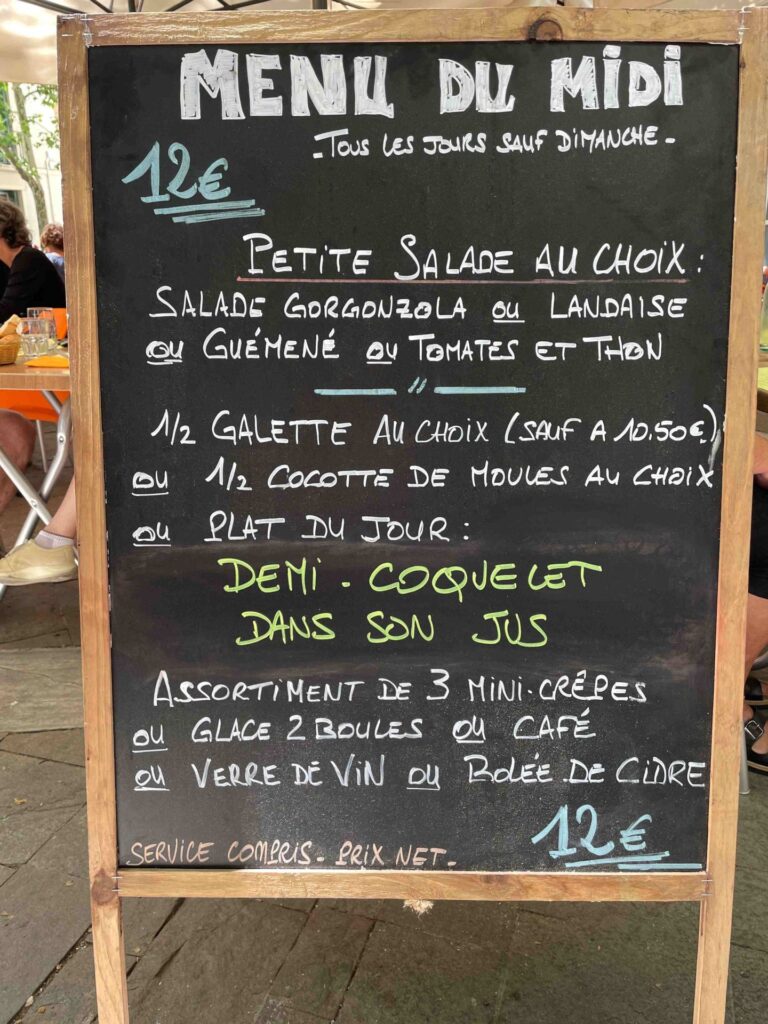 MENU DU MIDI
- TOUS LES JOURS SAUF DIMANCHE -
12€
PETITE SALADE AU CHOIX :
SALADE GORGONZOLA OU LANDAISE
OU GUÉMENÉ OU TOMATES ET THON
"
1/2 GALETTE AU CHOIX (SAUF A 10.50€)
OU 1/2 COCOTTE DE MOULES AU CHOIX
OU PLAT DU JOUR :
DEMI - COQUELET
DANS SON JUS
ASSORTIMENT DE 3 MINI-CRÊPES
OU GLACE 2 BOULES OU CAFÉ
OU VERRE DE VIN OU BOLÉE DE CIDRE
12€
SERVICE COMPRIS - PRIX NET -